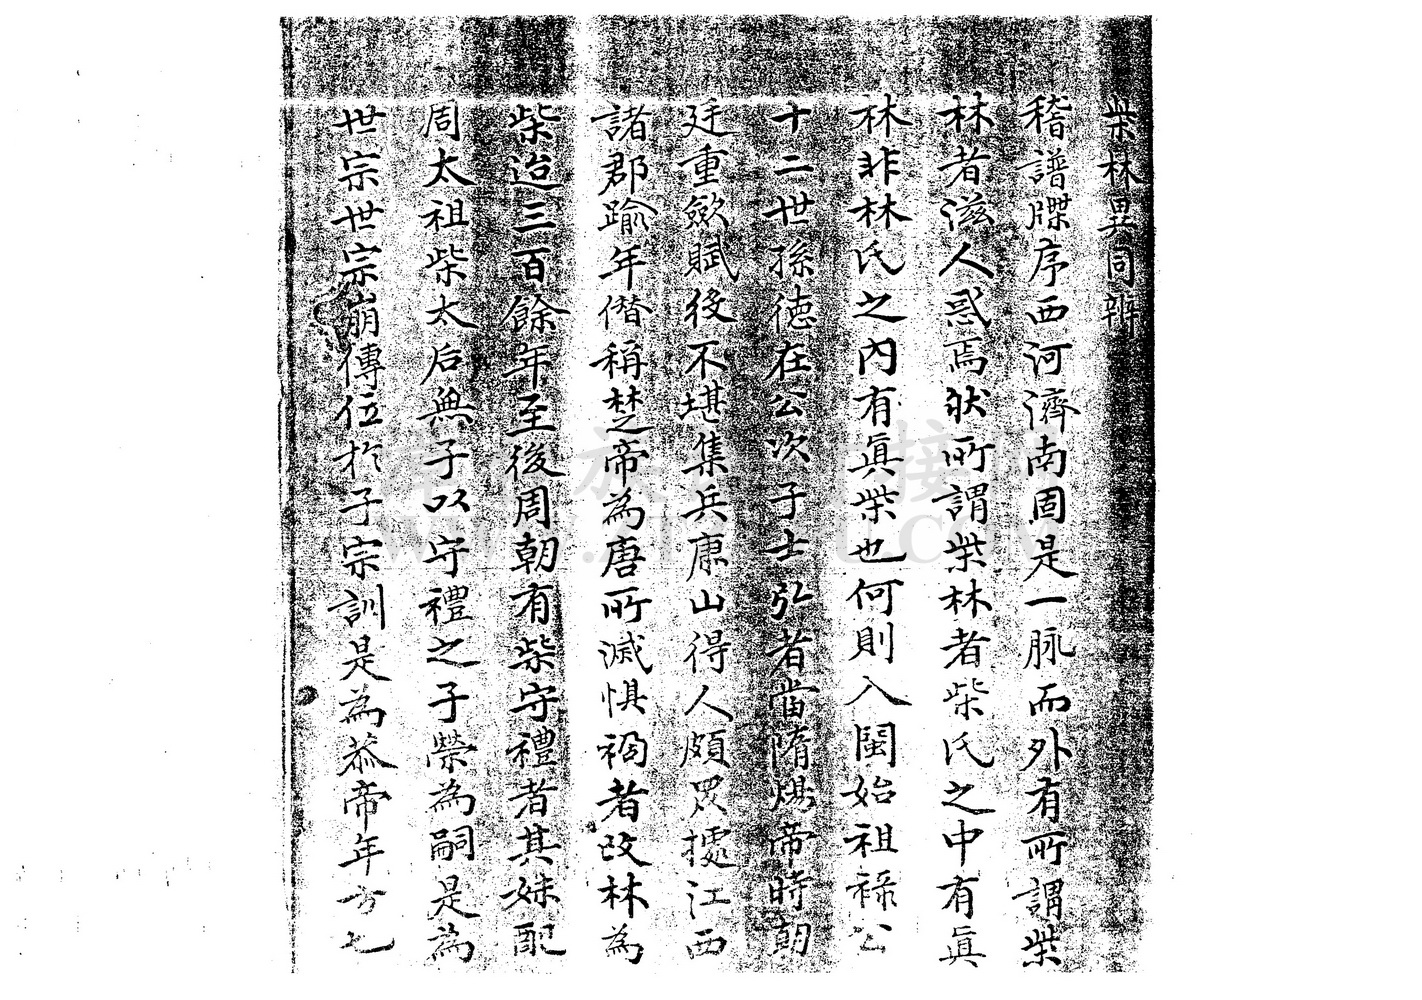 柴林異同辨
稽譜牒序西河濟南固是一脉而外有所謂柴
林者滋人惑焉狀所謂柴林者柴氏之中有眞
林非林氏之內有眞柴也何則入閩始祖祿公
十二世孫德在公次子士弘者當隋煬帝時朝
廷重歛賦役不堪集兵康山得人頗眾據江西
諸郡踰年僭稱楚帝為唐所滅惧禍者改林為
柴迨三百餘年至後周朝有柴守禮者其妹配
周太祖柴太后無子以守禮之子榮為嗣是為
世宗世宗崩傳位於子宗訓是為恭帝年方七